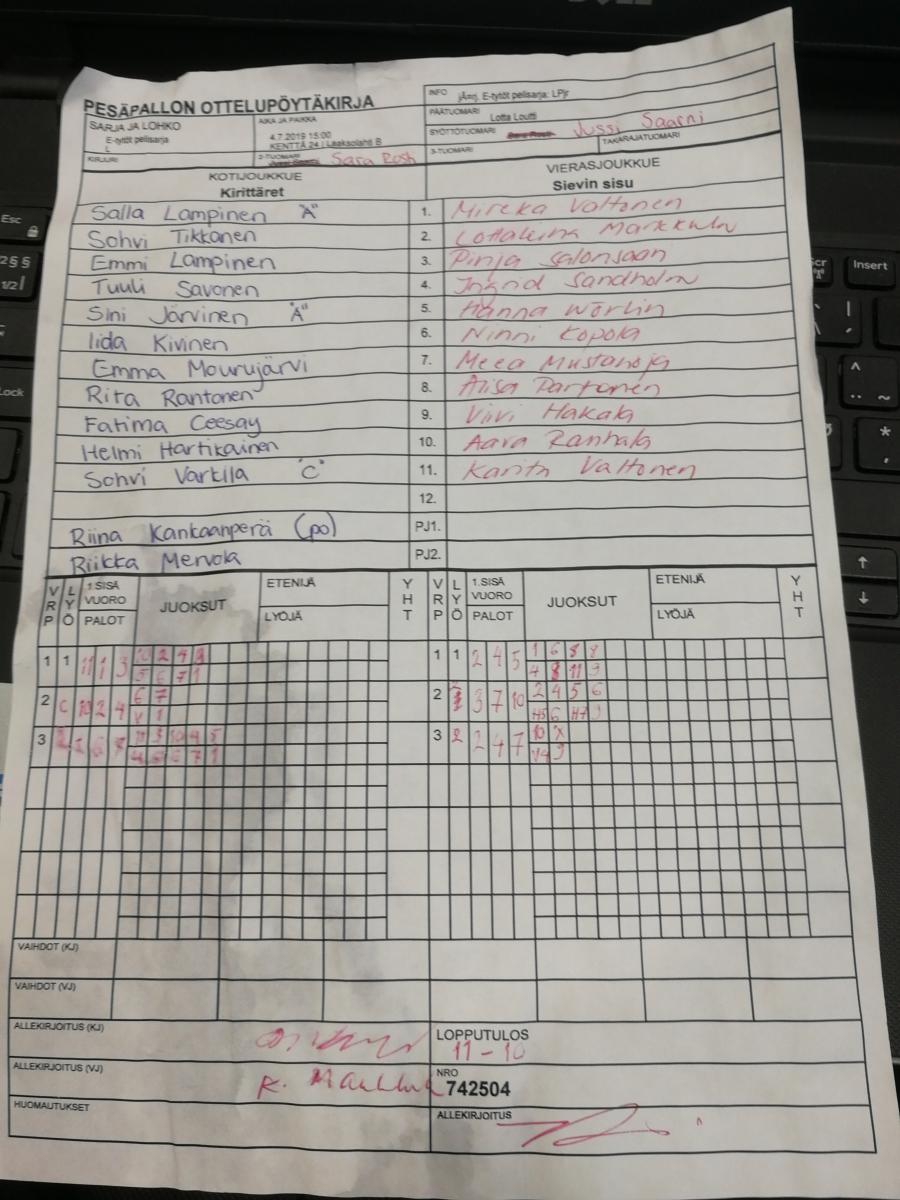 PESÄPALLON OTTELUPÖYTÄKIRJA
INFO jÄrrj. E-tytöt pelisarja: LPjr
SARJA JA LOHKO
E-tytöt pelisarja
L
AIKA JA PAIKKA
4.7.2019 15:00
KENTTÄ 24 | Laaksolahti B
PÄÄTUOMARI Lotta Loutti
SYÖTTÖTUOMARI Jussi Saarni
KIRJURI
2-TUOMARI Sara Rosh
3-TUOMARI
TAKARAJATUOMARI
KOTIJOUKKUE
Kirittäret
VIERASJOUKKUE
Sievin sisu
Salla Lampinen "A" 1. Mireka Valtonen
Sohvi Tikkanen 2. Lottaleena
Emmi Lampinen 3. Pinja Salonsaari
Tuuli Savonen 4. Ingrid Sandholm
Sini Järvinen "A" 5. Hanna Wörlin
Iida Kivinen 6. Ninni Kopola
Emma Mourujärvi 7. Meea Mustanoja
Rita Rantonen 8. Aliisa Partonen
Fatima Ceesay 9. Viivi Hakala
Helmi Hartikainen 10. Aava Ranhala
Sohvi Vartila "C" 11. Karita Valtonen
12.
Riina Kankaanperä (po) PJ1.
Riikka Mervola PJ2.
VRP LYÖ 1.SISÄ VUORO PALOT JUOKSUT ETENIJÄ LYÖJÄ YHT VRP LYÖ 1.SISÄ VUORO PALOT JUOKSUT ETENIJÄ LYÖJÄ YHT
1 1 11 1 3 10 2 4 9 1 1 2 4 5 1 6 8 8
5 6 7 1 4 8 11 9
2 C 10 2 4 6 7 2 3 7 10 2 4 5 6
V 1 H5 6 H7 9
3 6 3 10 4 5 3 2 2 4 7 10 X
6 7 1 V4 9
VAIHDOT (KJ)
VAIHDOT (VJ)
ALLEKIRJOITUS (KJ)
LOPPUTULOS
11 - 10
ALLEKIRJOITUS (VJ) K.
NRO
742504
HUOMAUTUKSET
ALLEKIRJOITUS